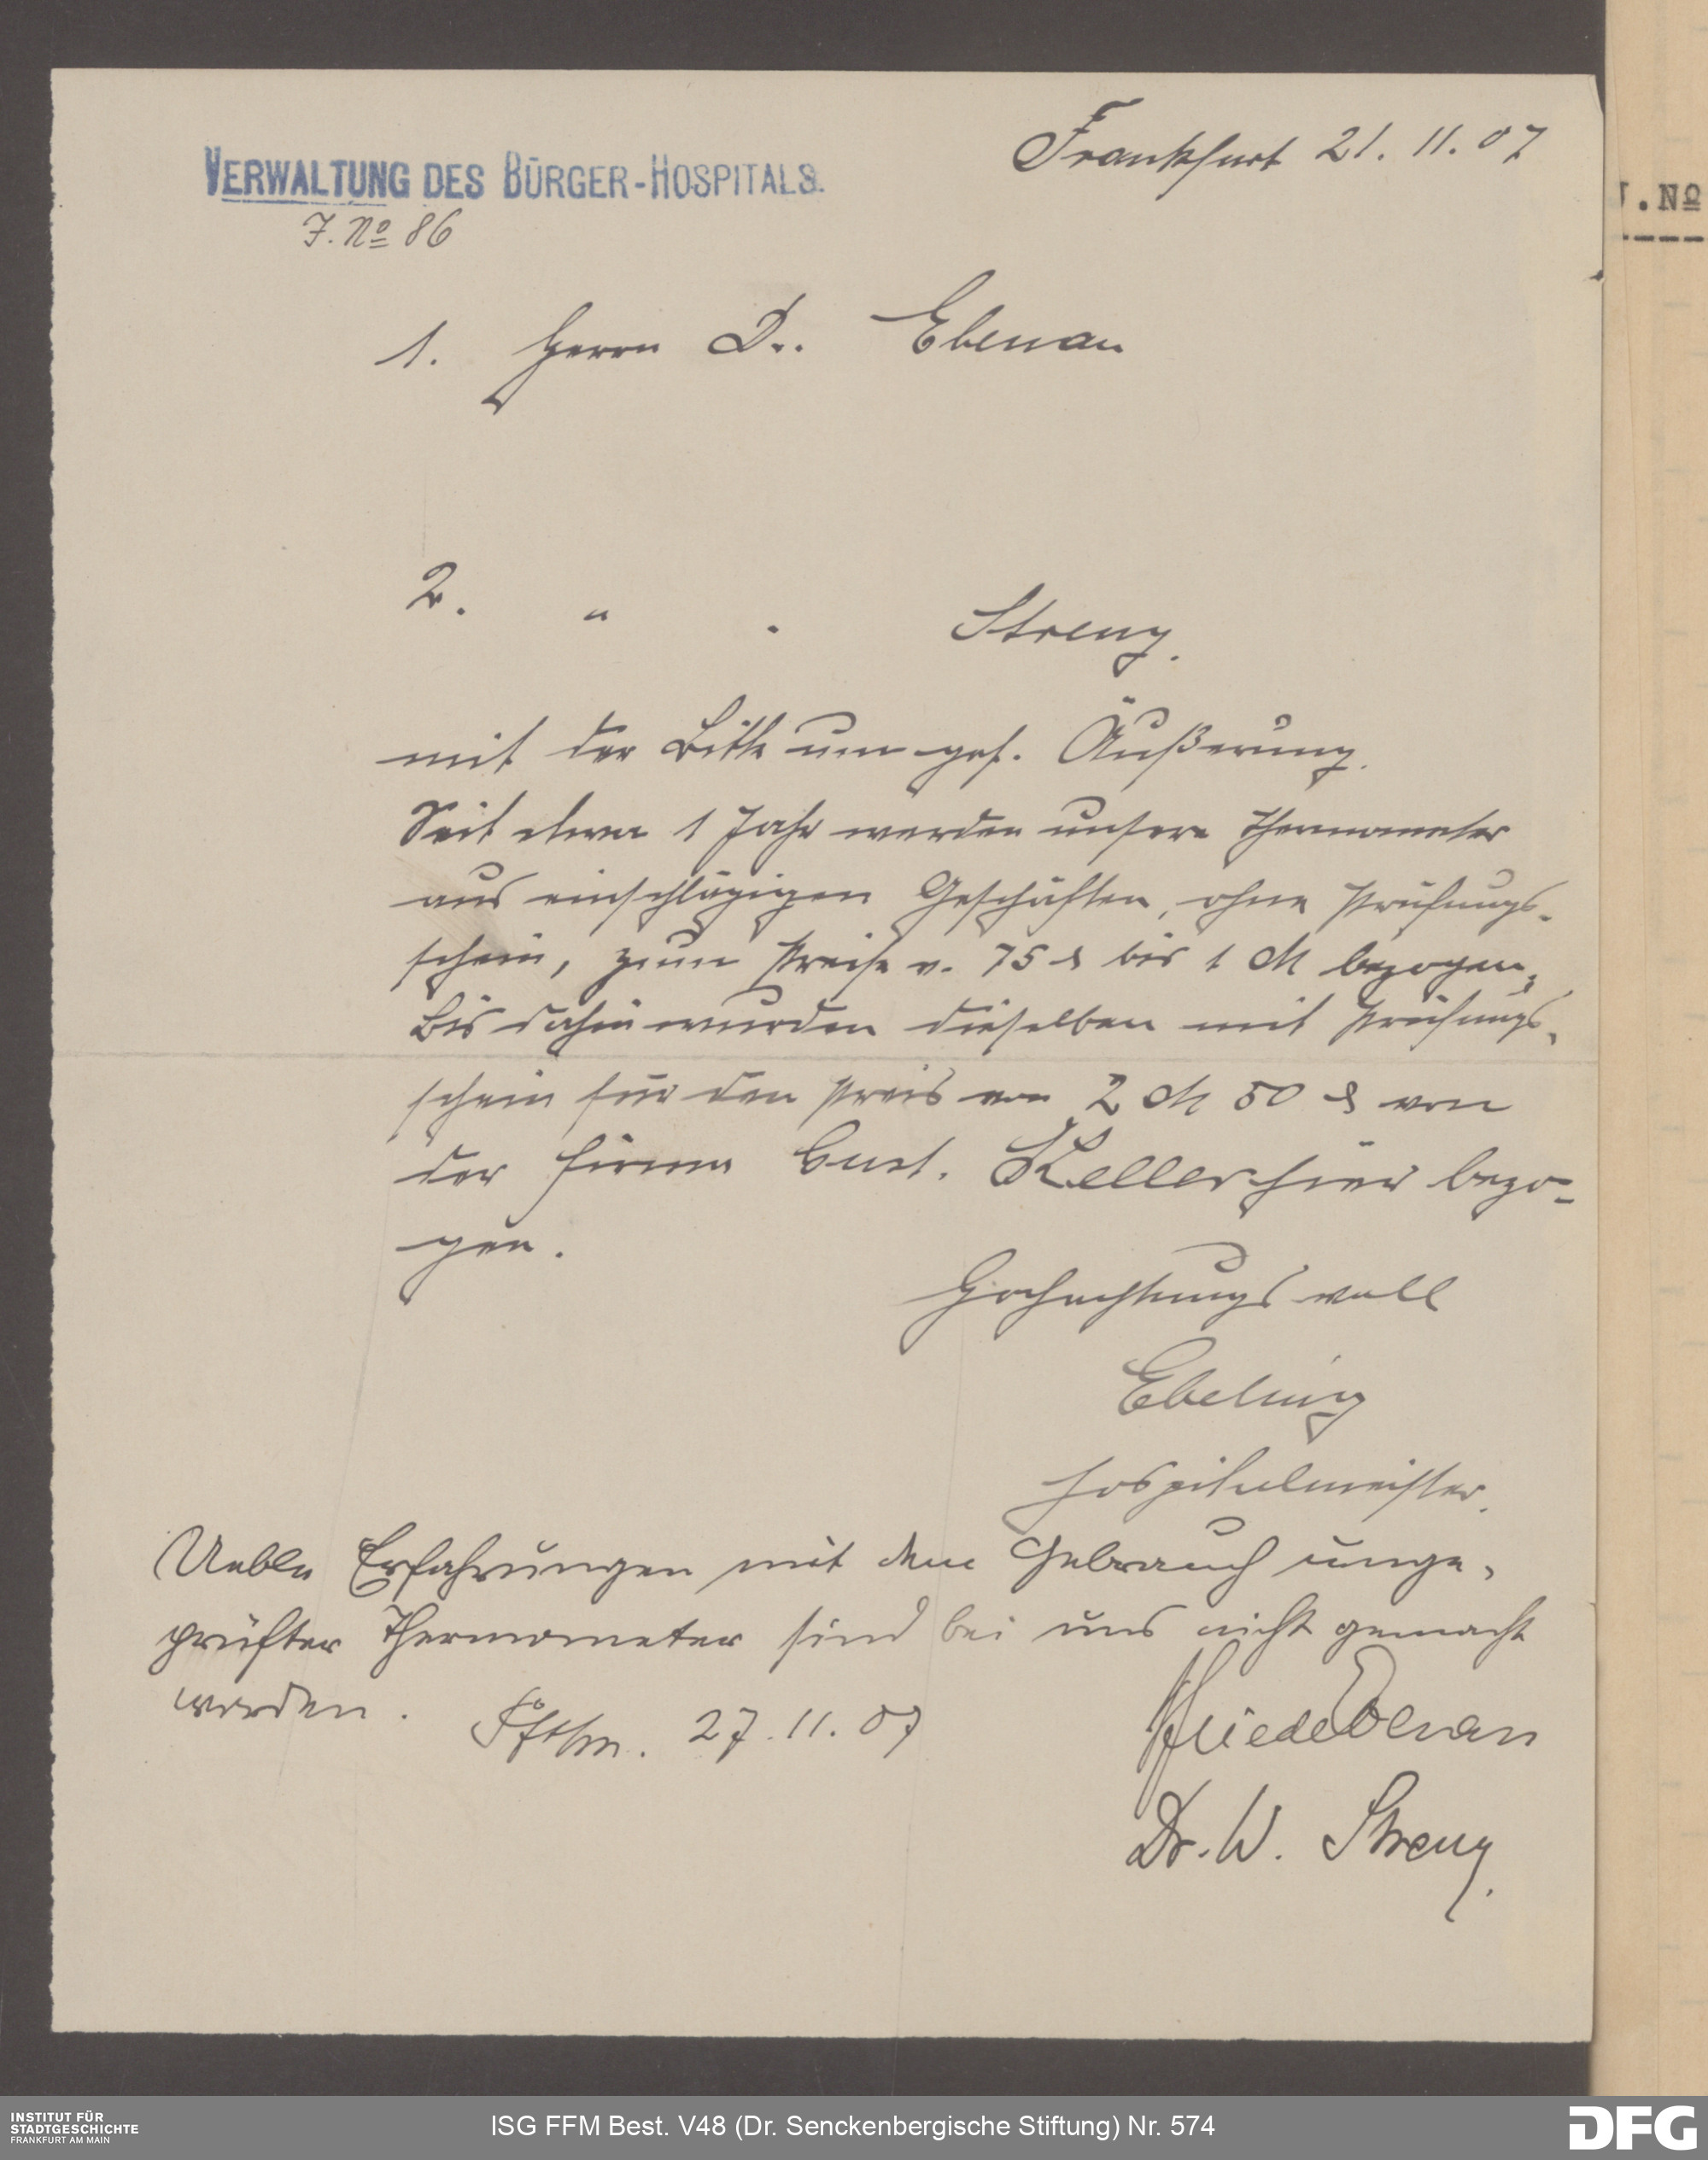 Frankfurt 21. 11. 07
VERWALTUNG DES BÜRGER-HOSPITALS.
J. № 86
J. №
1. Herrn Dr. Ebenau
2. " " Streng.
mit der Bitte um gef. Äußerung.
Seit etwa 1 Jahr werden unsere Thermometer
aus einschlägigen Geschäften, ohne Prüfungs-
schein, zum Preise v. 75 ₰ bis 1 M bezogen,
Bis dahin wurden dieselben mit Prüfungs-
schein für den Preis von 2 M 50 ₰ von
der Firma Gust. Keller hier bezo-
gen.
Hochachtungsvoll
Ebeling
Hospitalmeister.
Ueble Erfahrungen mit dem Gebrauch unge-
prüfter Thermometer sind bei uns nicht gemacht
worden. 27. 11. 07
Dr. W. Streng.
INSTITUT FÜR
STADTGESCHICHTE
FRANKFURT AM MAIN
ISG FFM Best. V48 (Dr. Senckenbergische Stiftung) Nr. 574
DFG